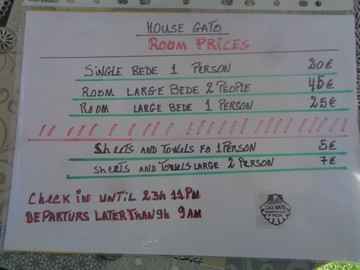 HOUSE GATO
ROOM PRICES
SINGLE BEDE 1 PERSON 20€
ROOM LARGE BEDE 2 PEOPLE 45€
ROOM LARGE BEDE 1 PERSON 25€
SHEETS AND TOWELS FO 1 PERSON 5€
SHEETS AND TOWELS LARGE 2 PERSON 7€
CHECK IN UNTIL 23H 11PM
DEPARTURS LATER THAN 9H 9AM